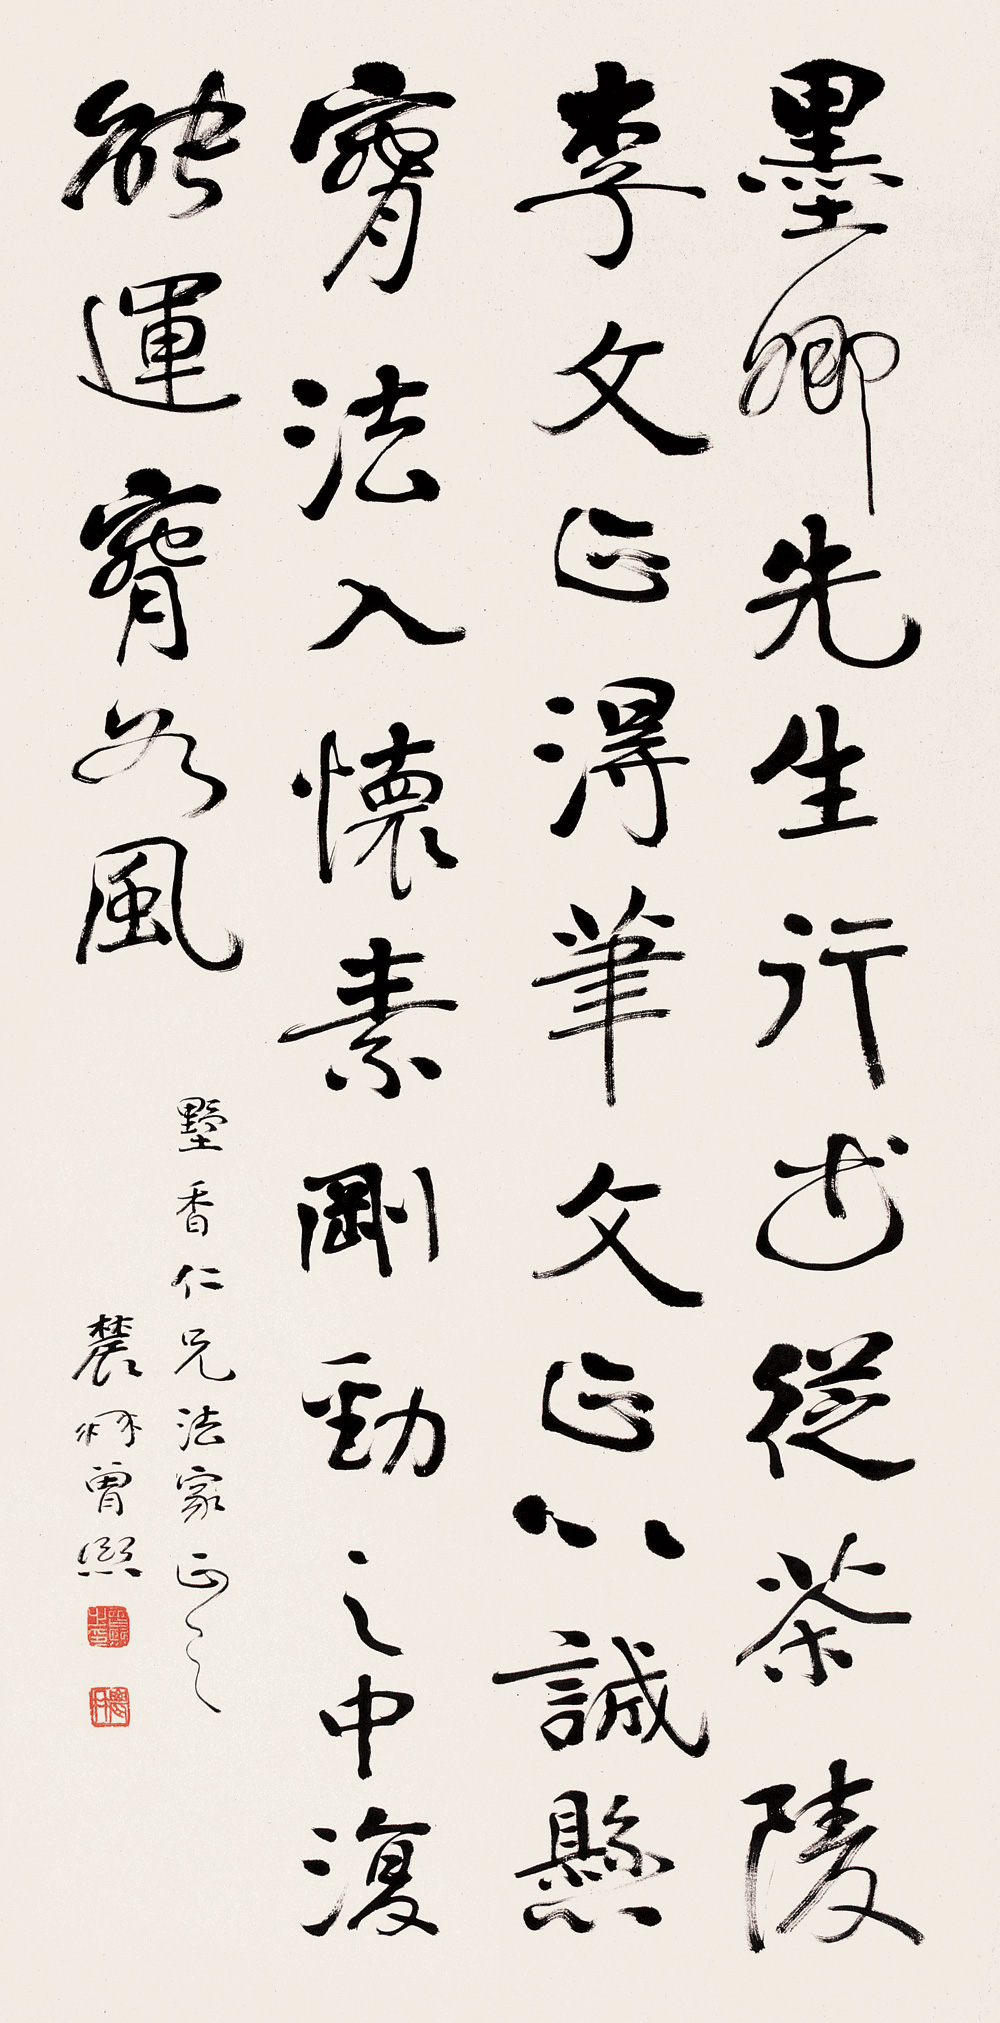 墨卿先生行書從茶陵
李文正得筆文正以誠懸
腕法入懷素剛勁之中復
能運腕如風
墅香仁兄法家正之
農髯曾熙